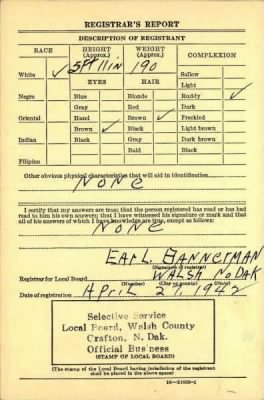 REGISTRAR'S REPORT
DESCRIPTION OF REGISTRANT
RACE HEIGHT (Approx.) WEIGHT (Approx.) COMPLEXION
White ✓ 5 FT 11 IN 190 Sallow
Light
EYES HAIR Ruddy ✓
Negro Blue Blonde Dark
Gray Red Freckled
Oriental Hazel Brown ✓ Light brown
Brown ✓ Black Dark brown
Indian Black Gray Black
Bald
Filipino
Other obvious physical characteristics that will aid in identification
NONE
I certify that my answers are true; that the person registered has read or has had
read to him his own answers; that I have witnessed his signature or mark and that
all of his answers of which I have knowledge are true, except as follows:
NONE
EARL BANNERMAN
(Signature of registrar)
Registrar for Local Board WALSH NO DAK
(Number) (City or county) (State)
Date of registration April 27, 1942
Selective Service
Local Board, Walsh County
Crafton, N. Dak.
Official Business
(STAMP OF LOCAL BOARD)
(The stamp of the Local Board having jurisdiction of the registrant
shall be placed in the above space)